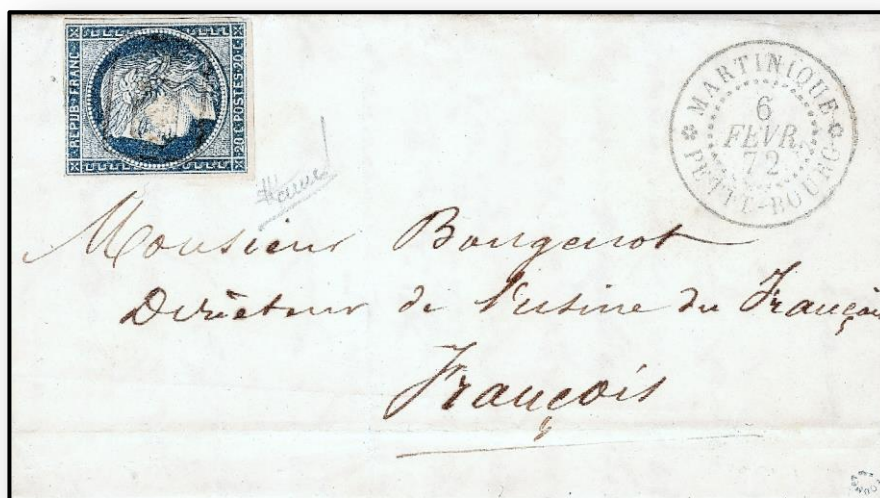 REPUB. FRANC.
20 C. POSTES. 20 C.
MARTINIQUE
6
FEVR.
72
PETIT-BOURG
Monsieur Bougenot
Directeur de l'usine du François
François